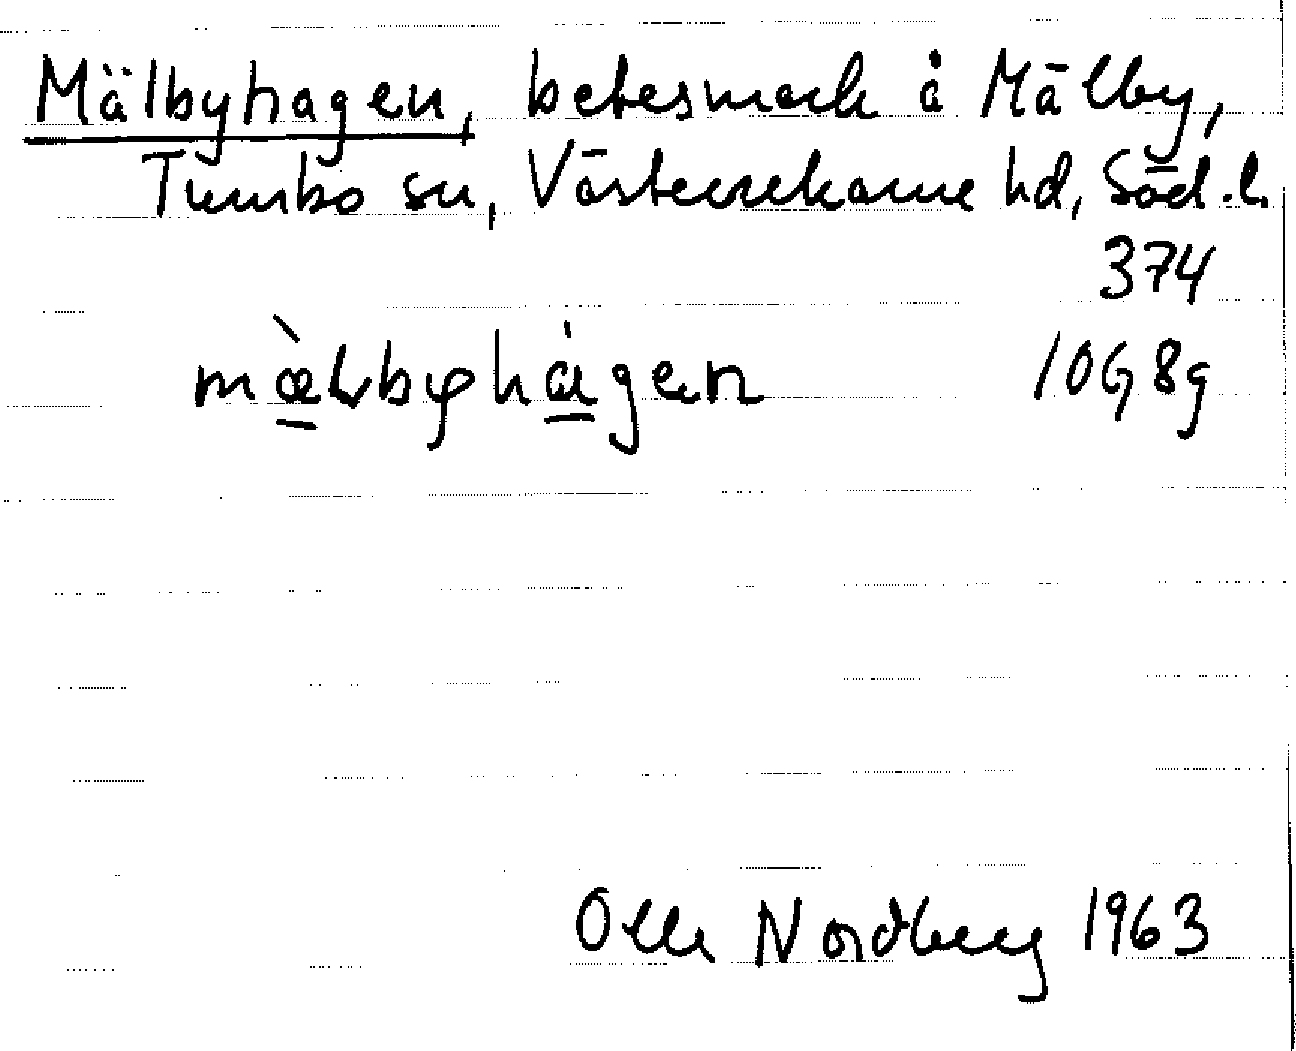 Mälbyhagen, betesmark å Mälby,
Tumbo sn, Västerrekarne hd, Söd.l.
374
mæ̀lbyhágen 10G8g
Olle Nordberg 1963